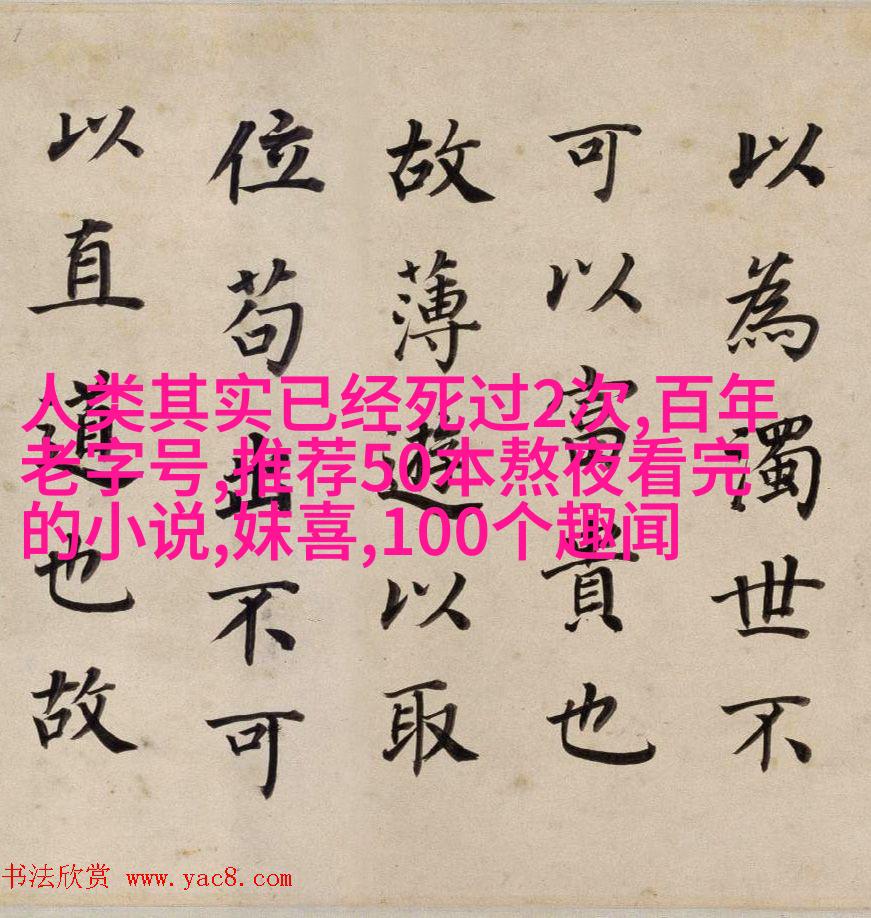 以為濁世不
可以富貴也
故薄遊以取
位苟出不可
以直道也故
人类其实已经死过2次,百年
老字号,推荐50本熬夜看完
的小说,妺喜,100个趣闻
书法欣赏 www.yac8.com